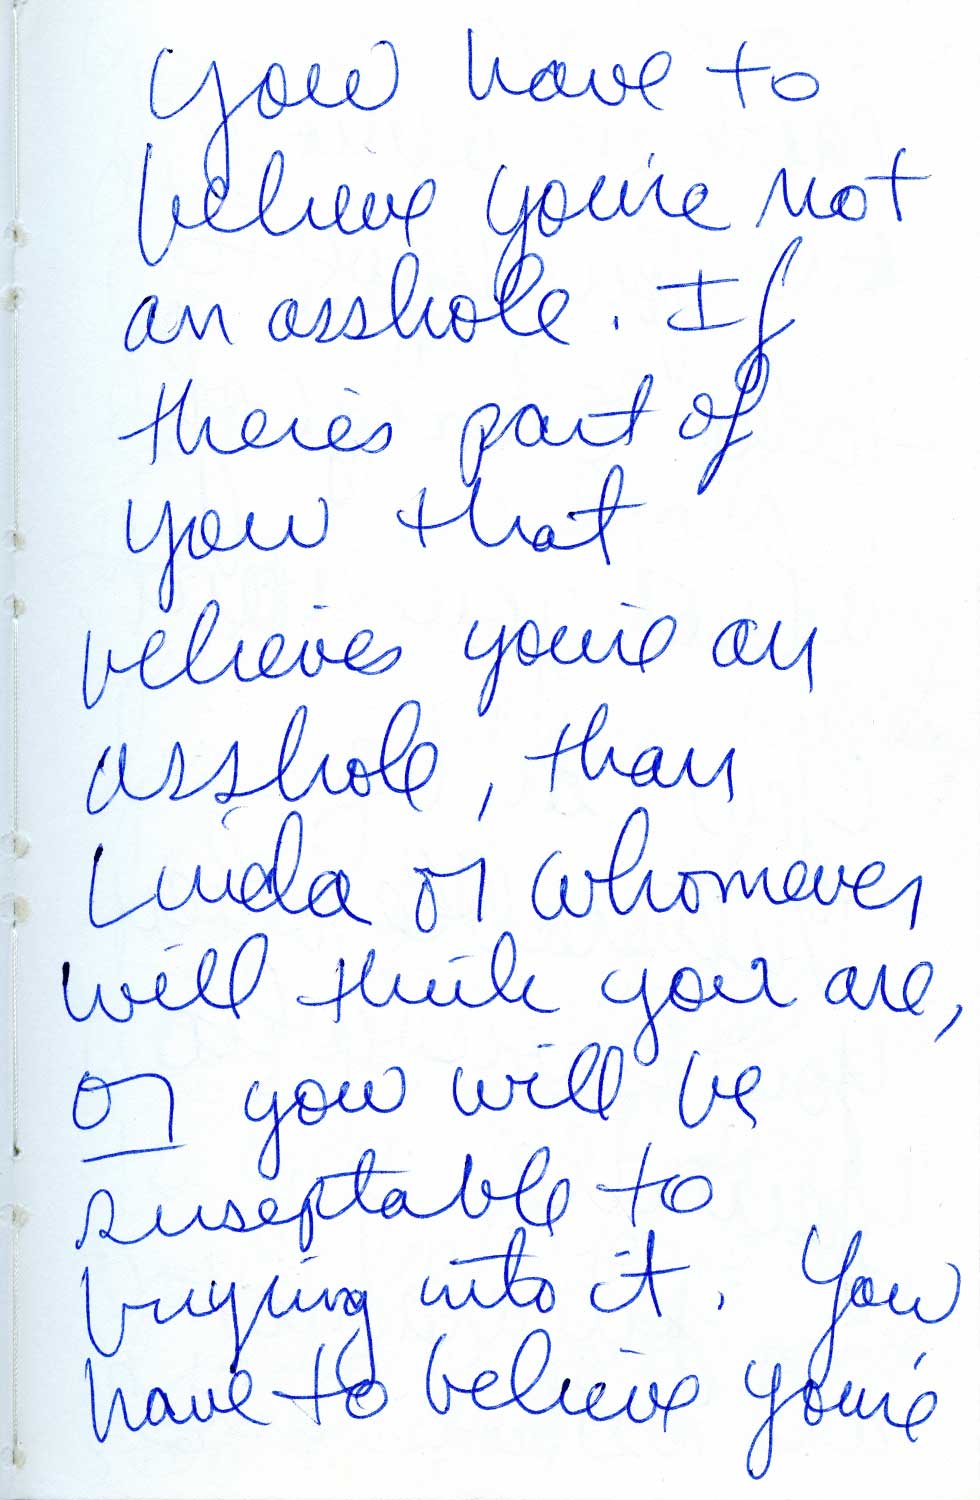 You have to
believe you're not
an asshole. If
there's part of
you that
believes you're an
asshole, than
Linda or whomever
will think you are,
or you will be
suseptable to
buying into it. You
have to believe you're